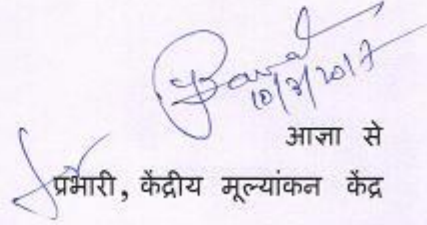 10/7/2017
आज्ञा से
for प्रभारी, केंद्रीय मूल्यांकन केंद्र